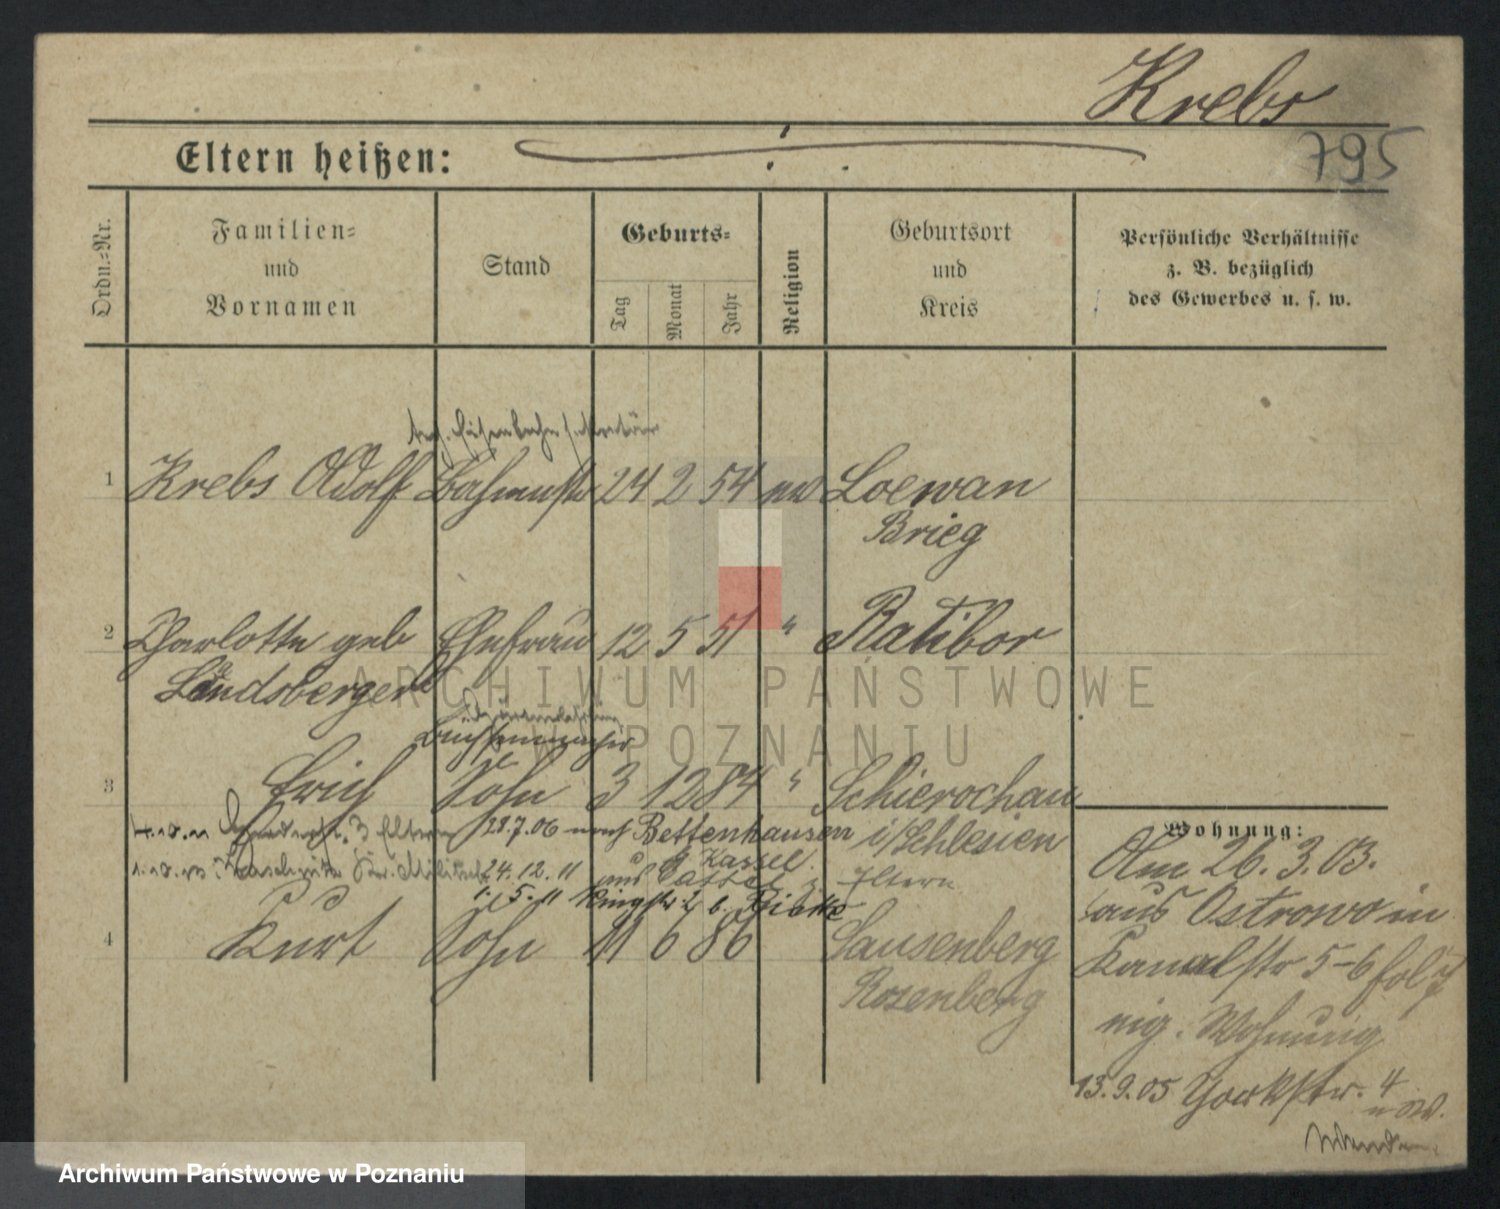 Krebs
795
Eltern heißen:
Ordn.-Nr.
Familien-
und
Vornamen
Stand
Geburts-
Tag
Monat
Jahr
Religion
Geburtsort
und
Kreis
Persönliche Verhältnisse
z. B. bezüglich
des Gewerbes u. s. w.
Eisenbahnsekretär
1 Krebs Adolf 24 2 54 ev Loewan
Brieg
2 Charlotte geb Ehefrau 12 5 51 " Ratibor
Landsberger
Büchsenmacher
3 Erich Sohn 3 12 84 " Schierochau
i/Schlesien
28.7.06 nach Bettenhausen
Kassel.
24.12.11 aus Cassel z. Eltern
1.5.11 Ringstr 2 b.
4 Kurt Sohn 11 6 86 Lausenberg
Rosenberg
Wohnung:
Am 26.3.03.
aus Ostrowo in
Kanalstr 5-6
Wohnung
13.9.05 Yorkstr. 4
ARCHIWUM PAŃSTWOWE
W POZNANIU
Archiwum Państwowe w Poznaniu